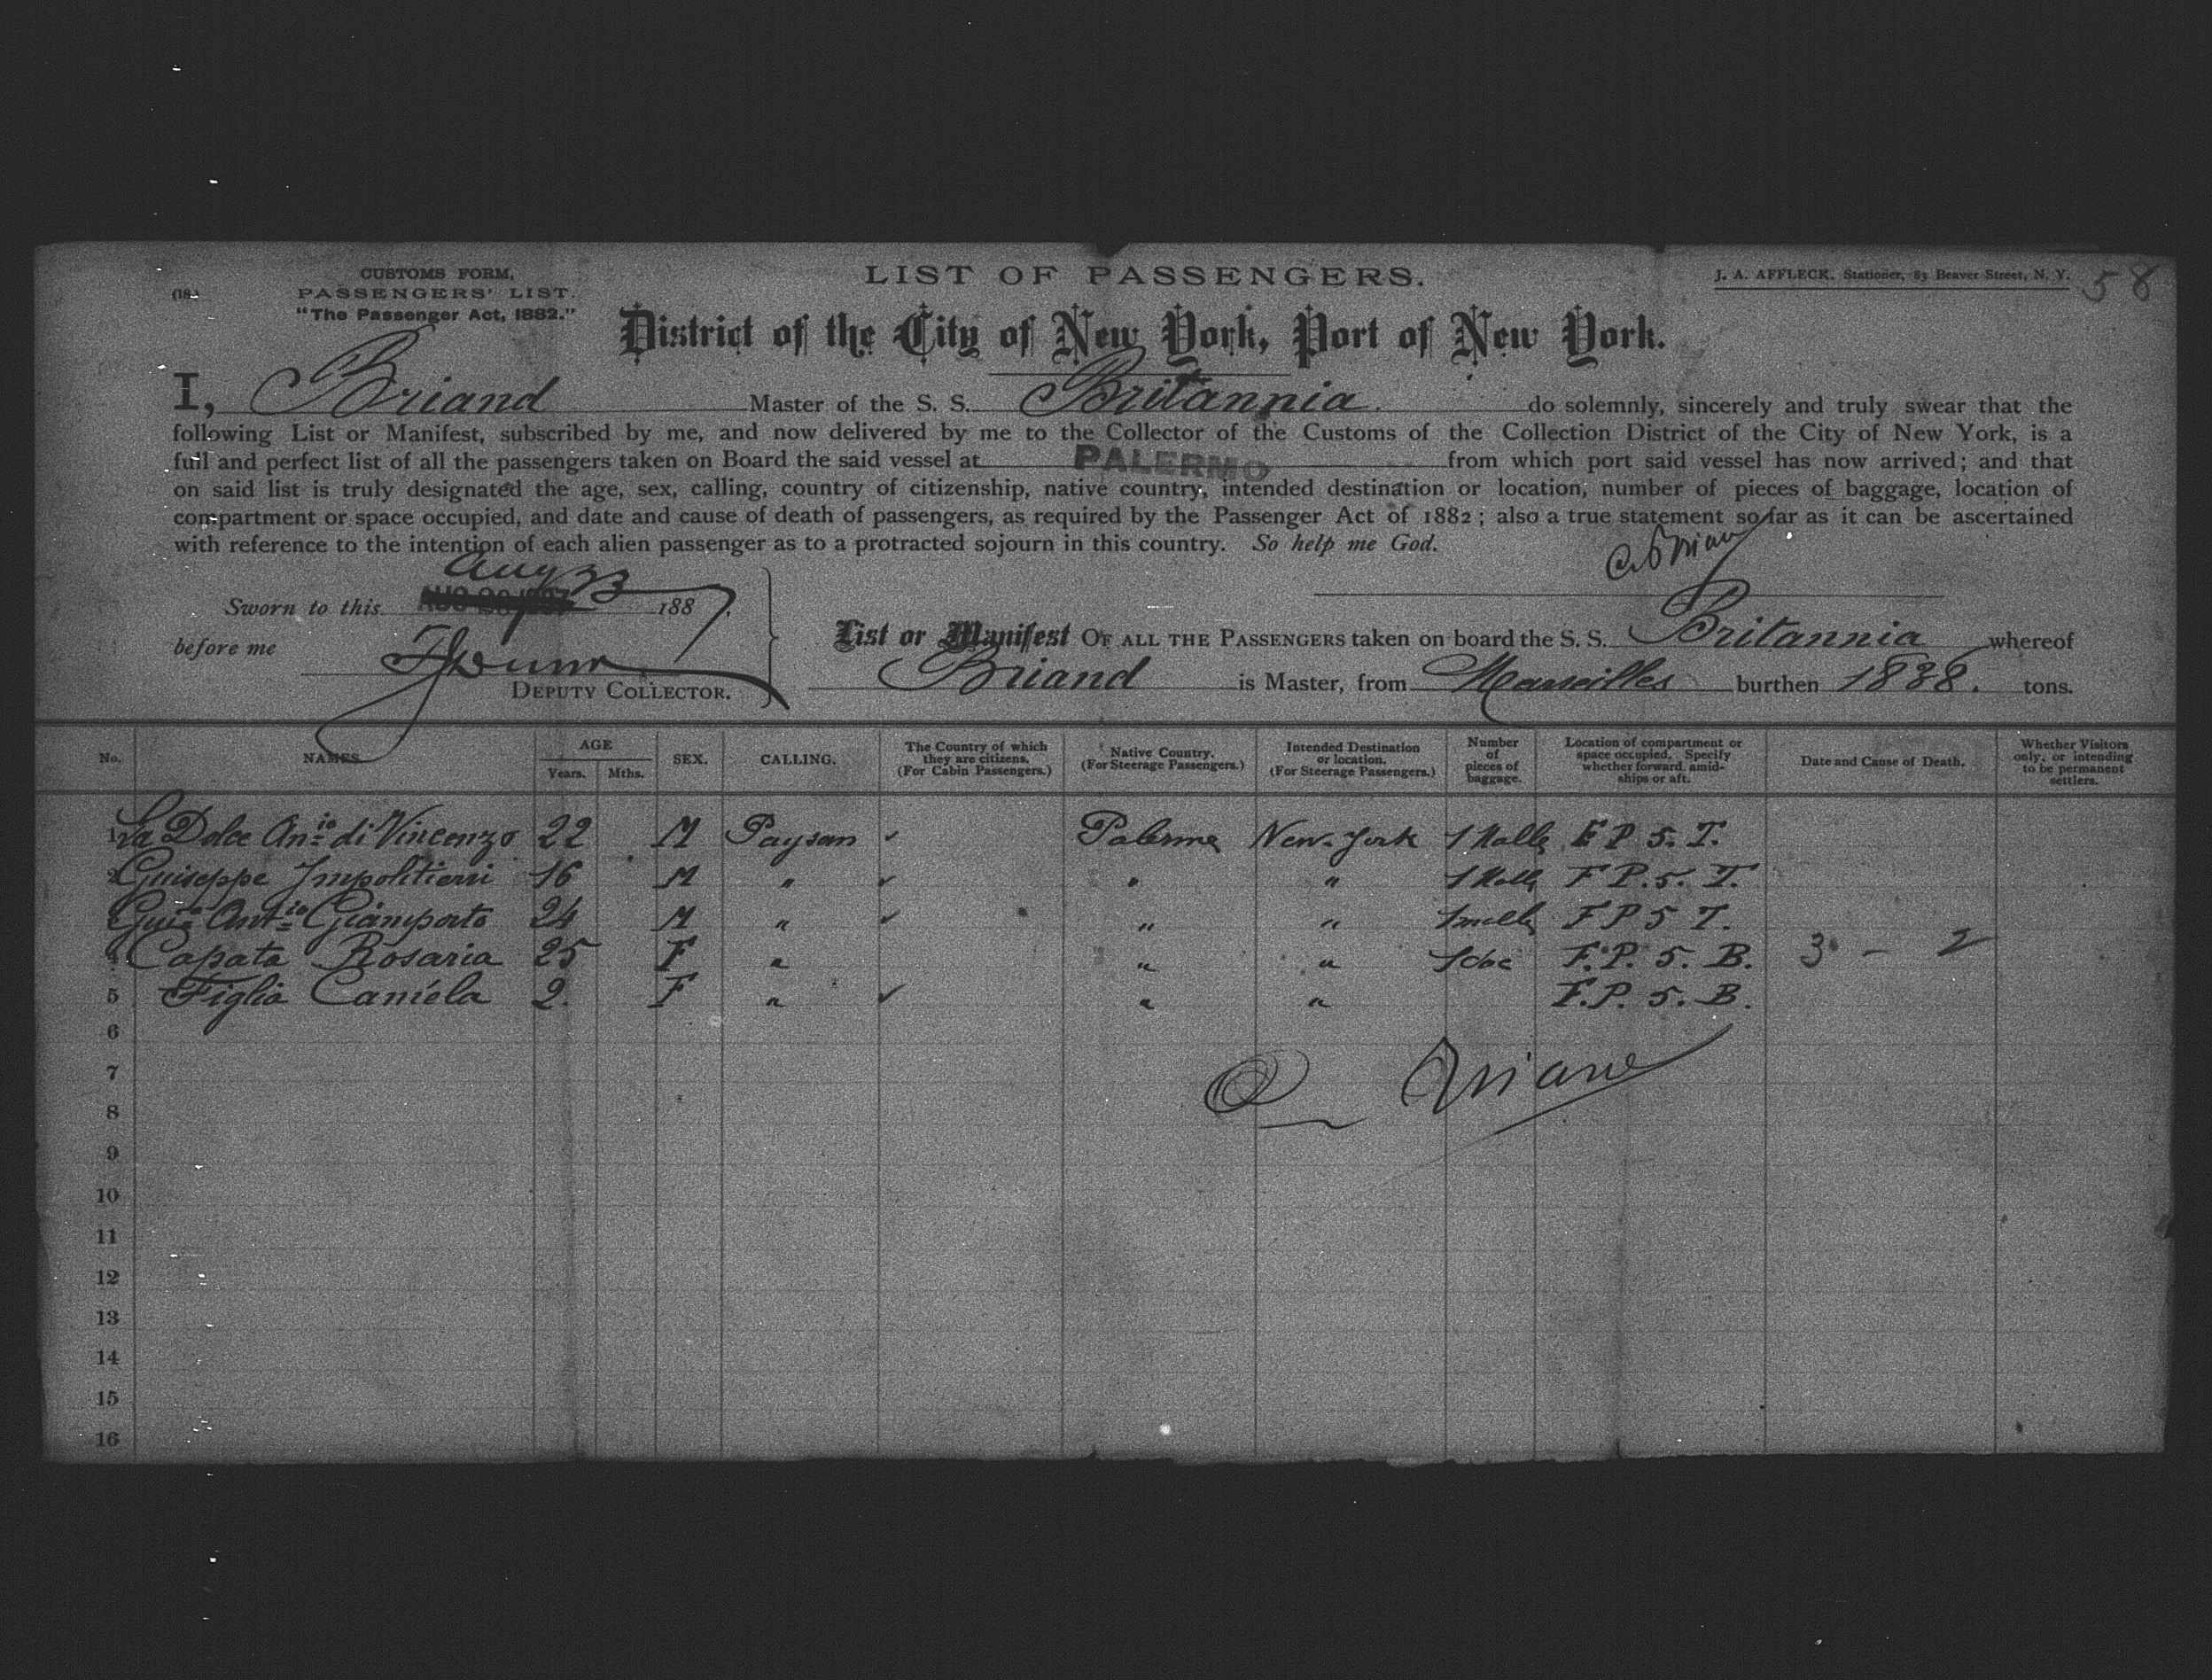 CUSTOMS FORM,
PASSENGERS' LIST.
"The Passenger Act, 1882."
LIST OF PASSENGERS.
J. A. AFFLECK, Stationer, 83 Beaver Street, N. Y.
58
District of the City of New York, Port of New York.
I, Briand Master of the S. S. Britannia. do solemnly, sincerely and truly swear that the
following List or Manifest, subscribed by me, and now delivered by me to the Collector of the Customs of the Collection District of the City of New York, is a
full and perfect list of all the passengers taken on Board the said vessel at PALERMO from which port said vessel has now arrived; and that
on said list is truly designated the age, sex, calling, country of citizenship, native country, intended destination or location, number of pieces of baggage, location of
compartment or space occupied, and date and cause of death of passengers, as required by the Passenger Act of 1882; also a true statement so far as it can be ascertained
with reference to the intention of each alien passenger as to a protracted sojourn in this country. So help me God.
Sworn to this Aug 23 1887.
before me
DEPUTY COLLECTOR.
List or Manifest OF ALL THE PASSENGERS taken on board the S. S. Britannia whereof
Briand is Master, from Marseilles burthen 1838. tons.
No. NAMES. AGE Years. Mths. SEX. CALLING. The Country of which they are citizens. (For Cabin Passengers.) Native Country. (For Steerage Passengers.) Intended Destination or location. (For Steerage Passengers.) Number of pieces of baggage. Location of compartment or space occupied. Specify whether forward, amidships or aft. Date and Cause of Death. Whether Visitors only, or intending to be permanent settlers.
1 La Dolce An:io di Vincenzo 22 M Paysan ✓ Palermo New-York 1 Malle F P 5. T.
2 Guiseppe Impolitieri 16 M " ✓ " " 1 Malle F P. 5. T.
3 Gui: Ant:io Giamporto 24 M " ✓ " " 1 malle F P 5 T.
4 Capata Rosaria 25 F " " " F. P. 5. B. 3 - 2
5 Figlia Camela 2. F " ✓ " " F. P. 5. B.
6
7
8
9
10
11
12
13
14
15
16